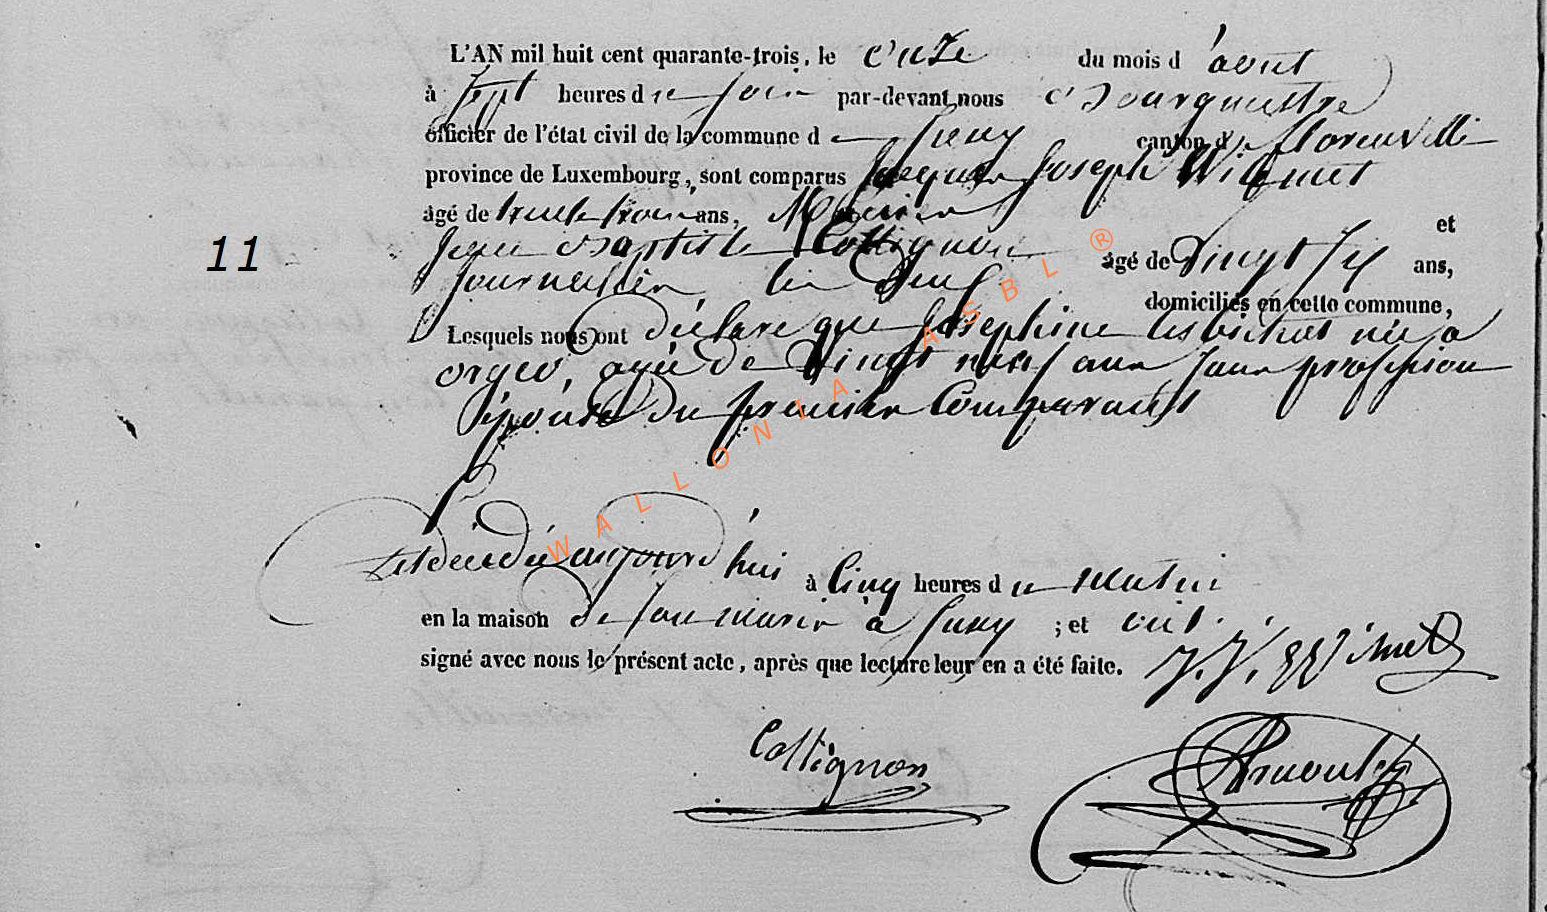 L'AN mil huit cent quarante-trois, le onze du mois d'août
à sept heures du soir par-devant nous Bourguestre
officier de l'état civil de la commune de Suxy canton d florenville
province de Luxembourg, sont comparus Jacques Joseph Wilmet
âgé de trente trois ans,
et
11
Jean Baptiste Collignon âgé de vingt six ans,
Journalier les deux domiciliés en cette commune,
Lesquels nous ont déclaré que Josephine née à
orgeo, agée de vingt neuf ans sans profession
épouse du premier Comparant
Est décédée aujourd'hui à Cinq heures du matin
en la maison de son marie à Suxy ; et ont
signé avec nous le présent acte, après que lecture leur en a été faite. J. J. Wilmet
Collignon Arnould
WALLONIA ASBL ®